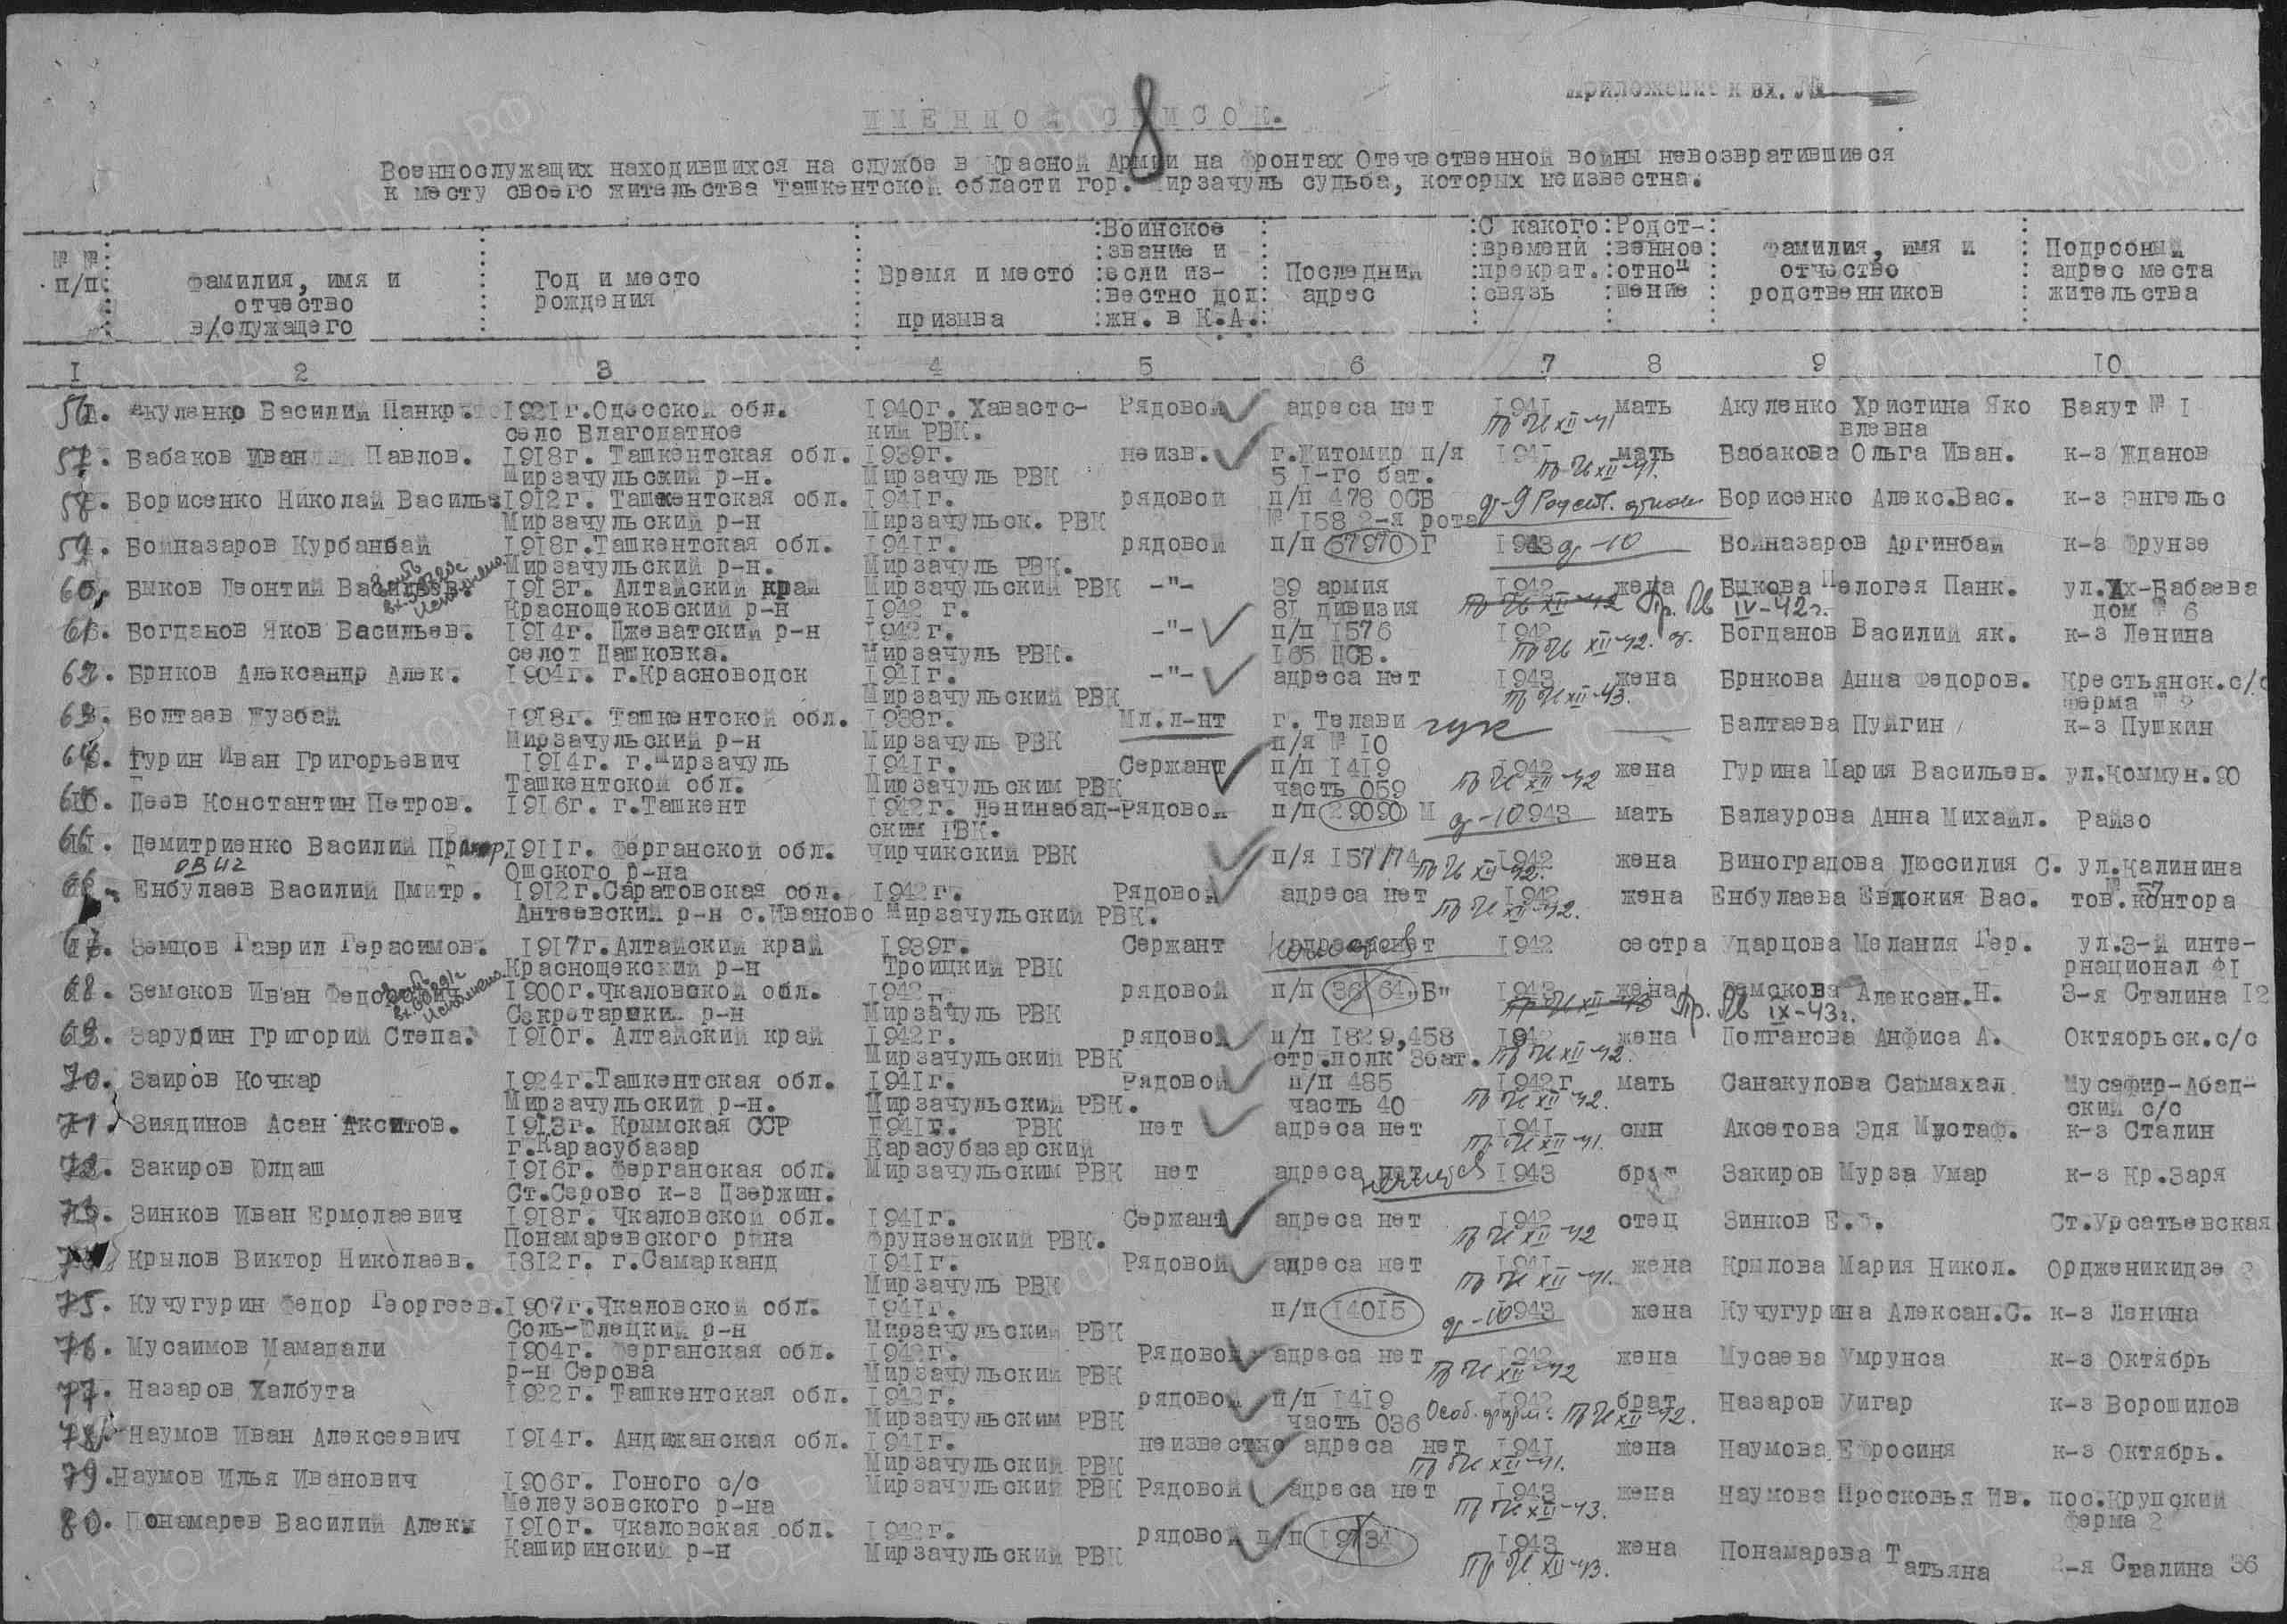 Приложение к вх. №
8
ИМЕННОЙ СПИСОК.
Военнослужащих находившихся на службе в Красной Армии на фронтах Отечественной войны невозвратившиеся
к месту своего жительства Ташкентской области гор. Мирзачуль судьба, которых неизвестна.
№ № п/п
Фамилия, имя и отчество в/служащего
Год и место рождения
Время и место призыва
Воинское звание и если из-вестно дол жн. в К.А.
Последний адрес
С какого времени прекрат. связь
Родст-венное отнош шение
Фамилия, имя и отчество родственников
Подробный адрес места жительства
1 2 3 4 5 6 7 8 9 10
56. Акуленко Василий Панкр. 1921г.Одесской обл. 1940г. Хавастс- Рядовой адреса нет 1941 мать Акуленко Христина Яко Баяут № 1
село Благодатное ким РВК. XII-41 влевна
57. Бабаков Иван Павлов. 1918г. Ташкентская обл. 1939г. неизв. г.Житомир п/я 1941 мать Бабакова Ольга Иван. к-з Жданов
Мирзачульский р-н. Мирзачуль РВК 5 1-го бат. XII-41.
58. Борисенко Николай Василье 1912г. Ташкентская обл. 1941г. рядовой п/п 478 ОСБ Борисенко Алекс.Вас. к-з Энгельс
Мирзачульский р-н Мирзачульск. РВК № 158 2-я рота
59. Бойназаров Курбанбай 1918г.Ташкентская обл. 1941г. рядовой п/п 57970 Г 1943 Бойназаров Аргинбай к-з Фрунзе
Мирзачульский р-н. Мирзачуль РВК.
60. Быков Леонтий Васильев. 1913г. Алтайский край Мирзачульский РВК -"- 39 армия 1942 жена Быкова Пелогея Панк. ул. Ах-Бабаева
Краснощековский р-н 1942 г. 81 дивизия XII-42 IV-42г. дом № 6
61. Богданов Яков Васильев. 1914г. Джеватский р-н 1942г. -"- п/п 1576 1942 Богданов Василий як. к-з Ленина
селот Пашковка. Мирзачуль РВК. 165 ЦСБ. XII-42.
62. Брнков Александр Алек. 1904г. г.Красноводск 1941г. -"- адреса нет 1943 жена Брнкова Анна Федоров. Крестьянск.с/с
Мирзачульский РВК XII-43. ферма № 2
63. Болтаев Тузбай 1918г. Ташкентской обл. 1938г. Мл.л-нт г. Телави гук Балтаева Пуйгин к-з Пушкин
Мирзачульский р-н Мирзачуль РВК п/я № 10
64. Гурин Иван Григорьевич 1914г. г.Мирзачуль 1941г. Сержант п/п 1419 1942 жена Гурина Мария Васильев. ул.Коммун.90
Ташкентской обл. Мирзачульским РВК часть 059 XII-42
65. Деев Константин Петров. 1916г. г.Ташкент 1942г. Ленинабад-Рядовой п/п 29090 М 1943 мать Балаурова Анна Михайл. Райзо
ским ГВК.
66. Демитриенко Василий 1911г. Ферганской обл. Чирчикский РВК п/я 157/74 1942 жена Виноградова Люссилия С. ул.Калинина
ович Ошского р-на XII-42. № 57
66. Енбулаев Василий Дмитр. 1912г.Саратовская обл. 1942г. Рядовой адреса нет 1942 жена Енбулаева Евдокия Вас. тов.контора
Антеевский р-н с.Иваново Мирзачульский РВК. XII-42.
67. Земцов Гаврил Герасимов. 1917г.Алтайский край 1939г. Сержант адреса нет 1942 сестра Ударцова Мелания Гер. ул.3-й инте-
Краснощекский р-н Троицкий РВК рнационал Ф1
68. Земсков Иван Федорович 1900г.Чкаловской обл. 1942г. рядовой п/п 36 64 "Б" 1943 жена Земскова Алексан.Н. 3-я Сталина 12
Секретарики р-н Мирзачуль РВК XII-43 IX-43г.
69. Зарубин Григорий Степа. 1910г. Алтайский край 1942г. рядовой п/п 1829,458 1942 жена Полганова Анфиса А. Октяорьск.с/с
Мирзачульский РВК стр.полк 3бат. XII-42.
70. Заиров Кочкар 1924г.Ташкентская обл. 1941г. Рядовой п/п 485 1942г мать Санакулова Саймахал Мусафир-Абад-
Мирзачульский р-н. Мирзачульский РВК. часть 40 XII-42. ский с/с
71. Зиядинов Асан Акситов. 1913г. Крымская ССР 1941г. РВК нет адреса нет 1941 сын Аксетова Эдя Мустаф. к-з Сталин
г.Карасубазар Карасубазарский XII-41.
72. Закиров Юлдаш 1916г. Ферганская обл. Мирзачульским РВК нет адреса нет 1943 брат Закиров Мурза Умар к-з Кр.Заря
Ст.Серово к-з Дзержин.
73. Зинков Иван Ермолаевич 1918г. Чкаловской обл. 1941г. Сержант адреса нет 1942 отец Зинков Е. Ст.Урсатьевская
Понамаревского рйна Фрунзенский РВК. XII-42
74. Крылов Виктор Николаев. 1312г. г.Самарканд 1941г. Рядовой адреса нет 1941 жена Крылова Мария Никол. Ордженикидзе
Мирзачуль РВК XII-41.
75. Кучугурин Федор Георгеев. 1907г.Чкаловской обл. 1941г. п/п 14015 1943 жена Кучугурина Алексан.С. к-з Ленина
Соль-Юлецкий р-н Мирзачульский РВК
76. Мусаимов Мамадали 1904г. Ферганская обл. 1942г. Рядовой адреса нет 1942 жена Мусаева Умрунса к-з Октябрь
р-н Серова Мирзачульский РВК XII-42
77. Назаров Халбута 1922г. Ташкентская обл. 1942г. рядовой п/п 1419 1942 брат Назаров Уигар к-з Ворошилов
Мирзачульским РВК часть 036 XII-42.
78. Наумов Иван Алексеевич 1914г. Андижанская обл. 1941г. неизвестно адреса нет 1941 жена Наумова Ефросиня к-з Октябрь.
Мирзачульский РВК XII-41.
79. Наумов Илья Иванович 1906г. Гоного с/с Мирзачульский РВК Рядовой адреса нет 1943 жена Наумова Просковья Ив. пос.Крупский
Мелеузовского р-на XII-43. ферма 2
80. Понамарев Василий Алекм 1910г. Чкаловская обл. 1942г. рядовой п/п 19734 1943 жена Понамарева Татьяна 2-я Сталина 36
Каширинский р-н Мирзачульский РВК XII-43.